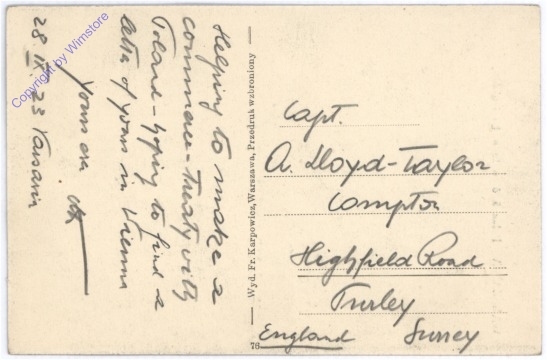 Helping to make a
commerce-treaty with
Poland - hoping to find a
letter of yours in Vienna
Yours ever
28. IX. 23 Varsavia
Wyd. Fr. Karpowicz, Warszawa, Przedruk wzbroniony
76
Capt.
A. Lloyd-Taylor
Compton
Highfield Road
Purley
England Surrey
Copyright by Wimstore